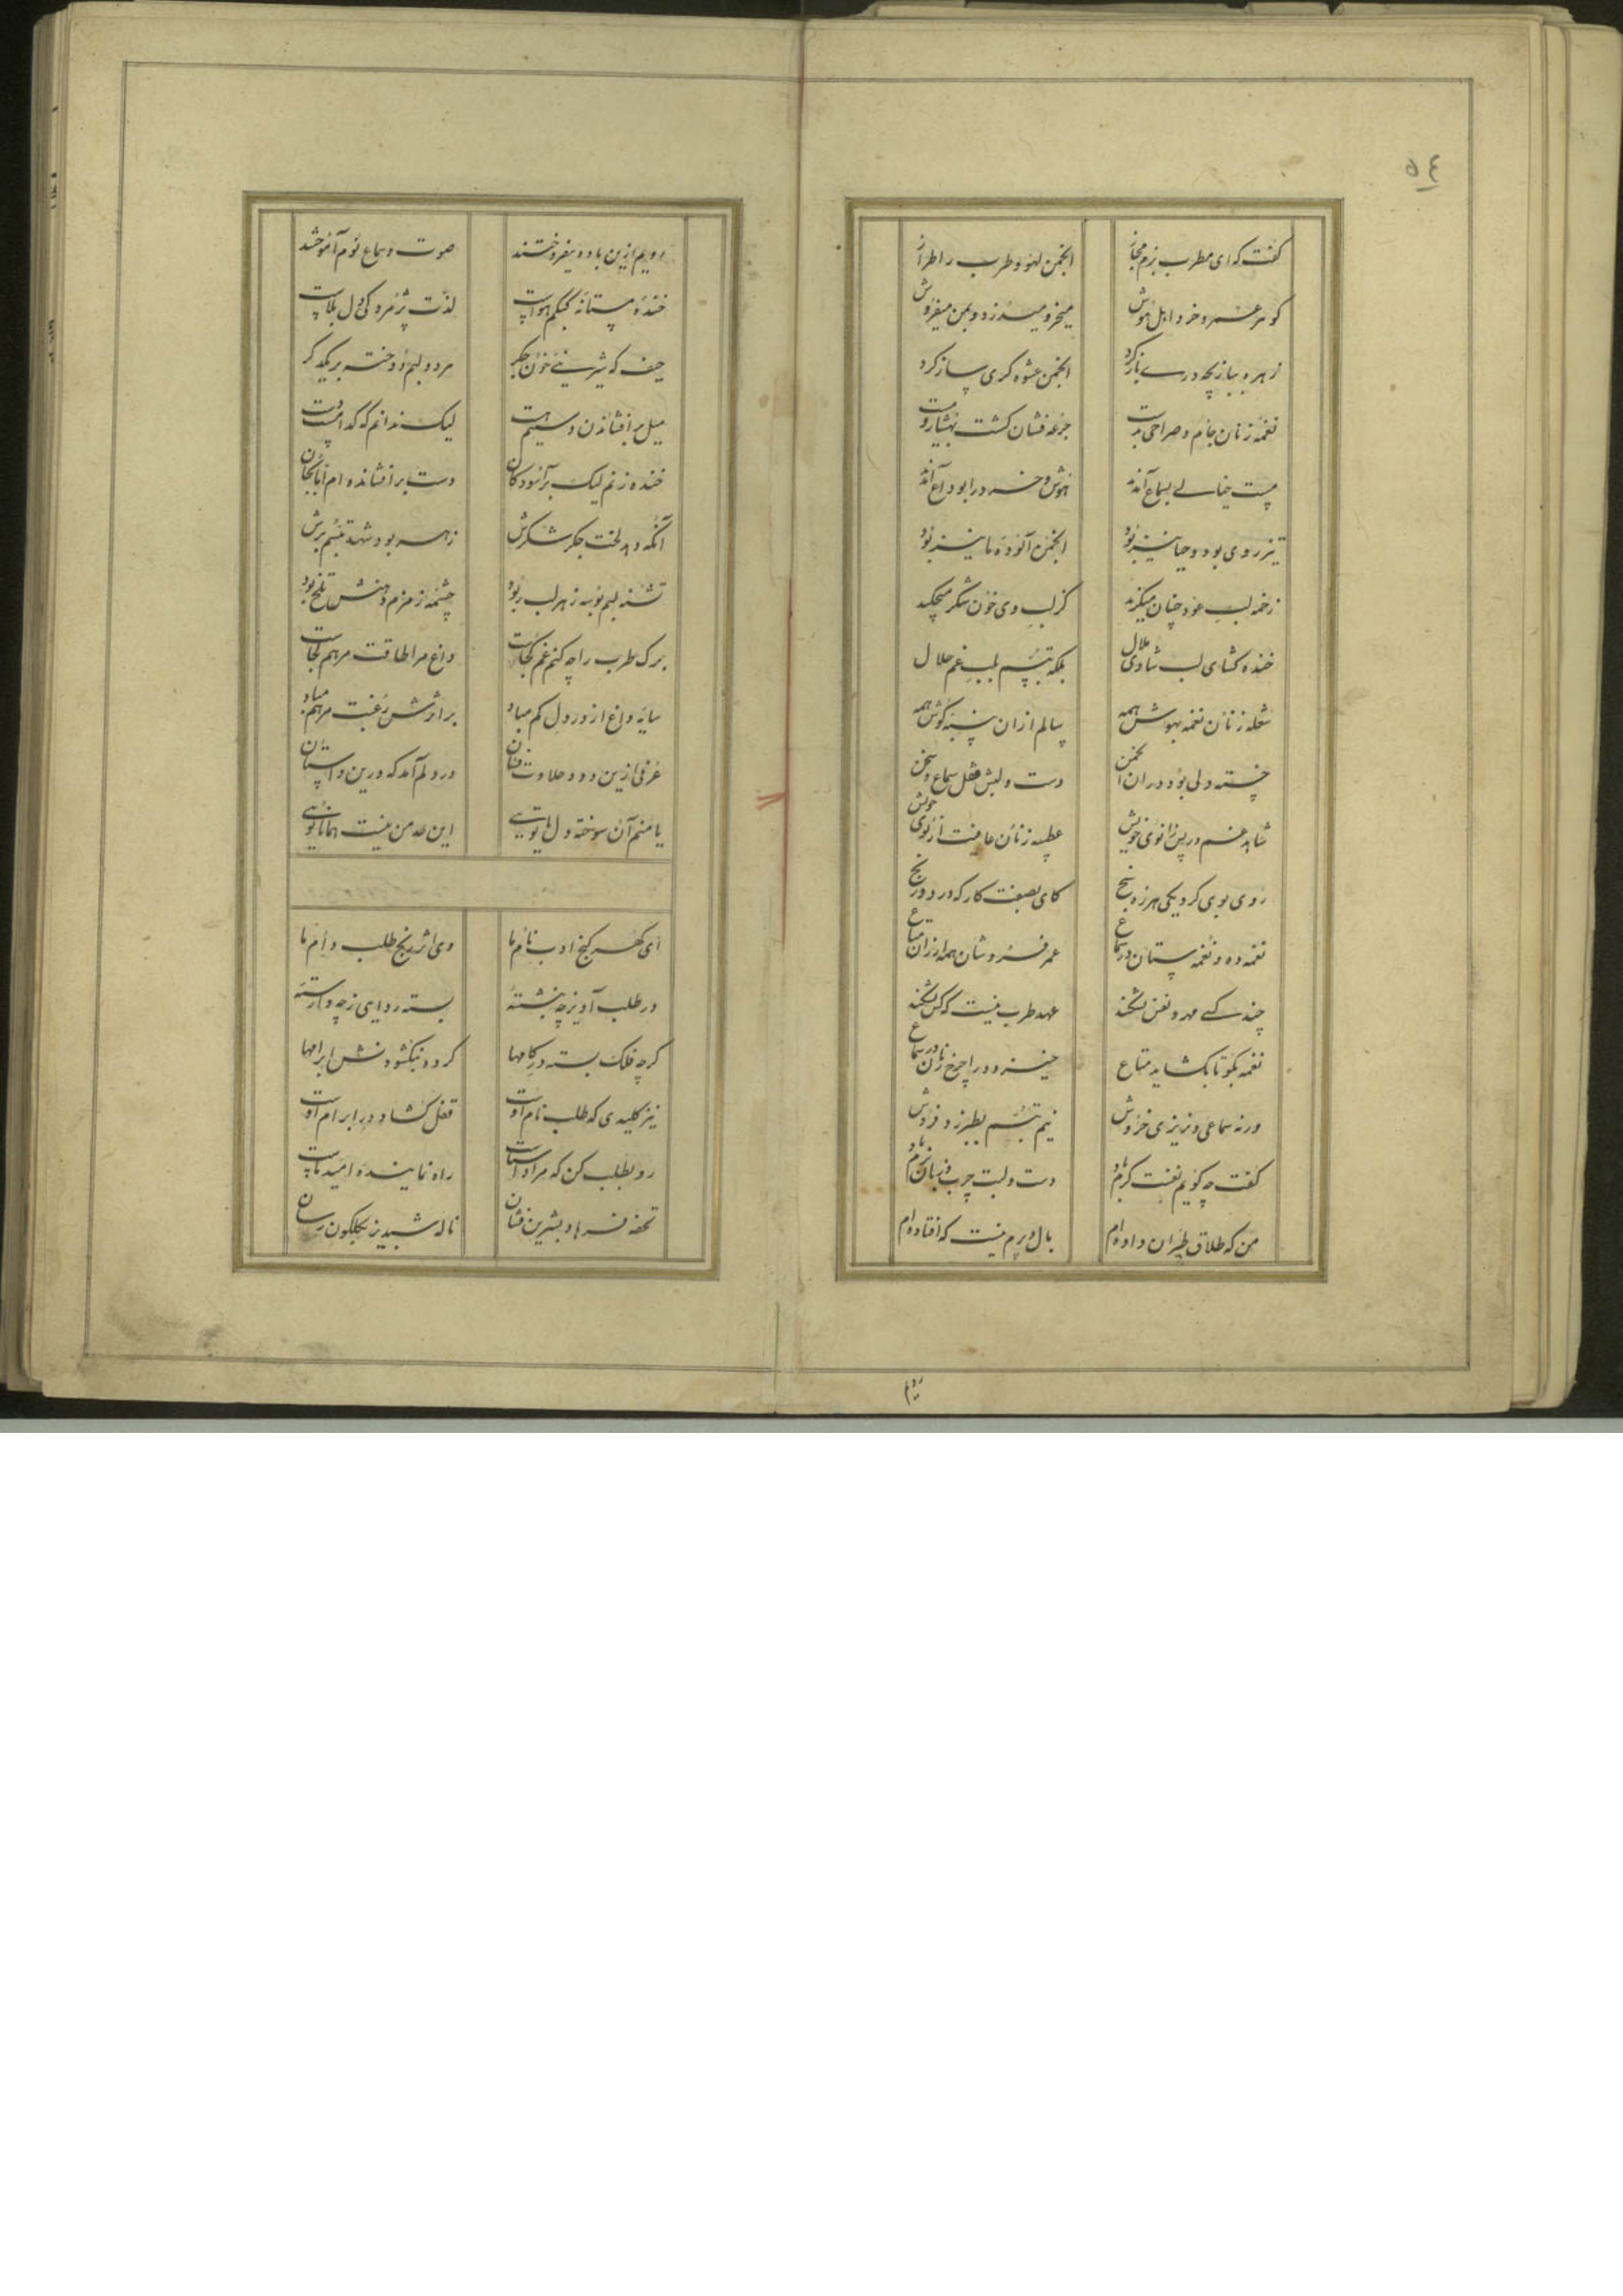 ٥٤
گفت که ای مطرب بزم مجاز انجمن لهو و طرب را طراز
گوهر عمر و خرد اهل هوش میخر و میدزد و بمن میفروش
زهره ببازیچه دری باز کرد انجمن عشوه گری ساز کرد
نغمه زنان جام و صراحی بدست جرعه فشان گشت بهشیار و مست
مست خیالی بسماع آمدند هوش و خرد را بوداع آمدند
تیز روی بود و حیا نیز بود انجمن آلوده ما نیز بود
زخمه لب عود چنان میگزید کز لب وی خون شکر میچکید
خنده گشای لب شادی ملال بلکه تبسم بلب غم حلال
شعله زنان نغمه بهوش همه سالم از آن پنبه گوش همه
خسته دلی بود در آن انجمن دست و لبش قفل سماع و سخن
شاهد غم در پس زانوی خویش عطسه زنان عافیت از بوی خویش
روی بوی کرد یکی هرزه سنج کای بصفت کار که درد و رنج
نغمه ده و نغمه ستان در سماع عمر فروشان همه ارزان متاع
چند کسی مهر و نفس نشکند عهد طرب نیست که کس نشکند
نغمه بگو تا بگشاید متاع خیز و در آ چرخ زنان در سماع
ور نه سماعی و نریزی خروش نیم تبسم بطرب زد فروش
گفت چه گویم نفست گرم باد دست و لبت چرب و زبان نرم باد
من که طلاق طیران داده‌ام بال و پرم نیست که افتاده‌ام
رویم
رویم ازین باده بیفروختند صوت و سماع توم آموختند
خنده مستانه کبکم هواست لذت پژمردگی دل بلاست
حیف که شیرینی خون جگر هر دو لبم دوخته بر یکدگر
میل بر افشاندن دستیم هست لیک ندانم که کدامست دست
خنده زنم لیک بر آسودگان دست بر افشانده‌ام اما بجان
آنکه دهد لخت جگر شکرش زهر بود شهد تبسم برش
تشنه لبم بوسه ز هر لب ربود چشمه زمزم دهنش تلخ بود
برگ طرب را چه کنم غم کجاست داغ مرا طاقت مرهم کجاست
سایه داغ از در دل کم مباد بر اثرش رغبت مرهم مباد
عرفی ازین درد حلاوت فشان در دلم آمد که درین داستان
یا منم آن سوخته دل یا تویی این نه من نیست همانا تویی
ای گهر گنج ادب نام ما وی اثر رنج طلب دام ما
در طلب آویز چه بنشسته بسته ردایی ز چه وارسته
گر چه فلک بسته در کامها کرد و نگشودنش ابرامها
نیز کلیدی که طلب نام اوست قفل گشاد در ابرام اوست
رو بطلب کن که مراد آشناست راه نماینده امید ماست
تحفه فرهاد بشیرین فشان ناله شبدیز بگلگون رسان